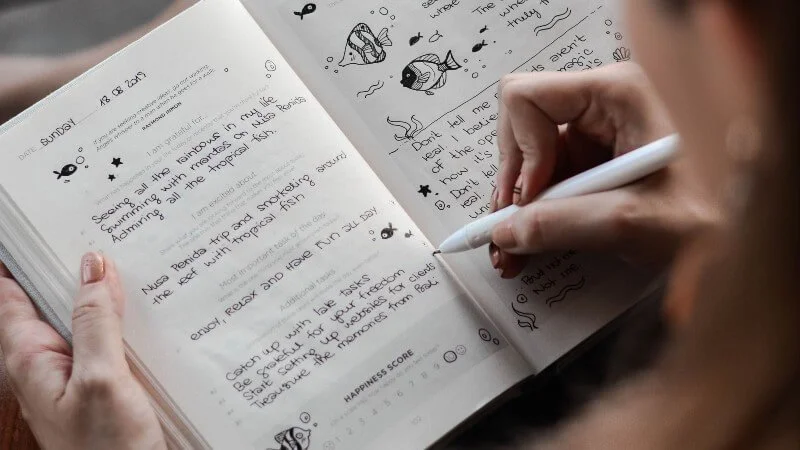 DATE SUNDAY 18 08 2019
If you are seeking creative ideas, go out walking.
Angels whisper to a man when he goes for a walk.
RAYMOND INMON
I am grateful for...
Seeing all the rainbows in my life
Swimming with mantas on Nusa Penida
Admiring all the tropical fish.
I am excited about
Nusa Penida trip and snorkeling around
the reef with tropical fish
Most important task of the day
enjoy, RELAX and HAVE FUN ALL DAY
Additional tasks
Catch up with late tasks
Be grateful for your freedom
Start setting up websites for clients
Treasure the memories from Bali
HAPPINESS SCORE
1 2 3 4 5 6 7 8 9
where The
truly
aren't
magic
Don't tell me
real I believe
of the ope
now it's
Don't tell
real
But not
Not me.